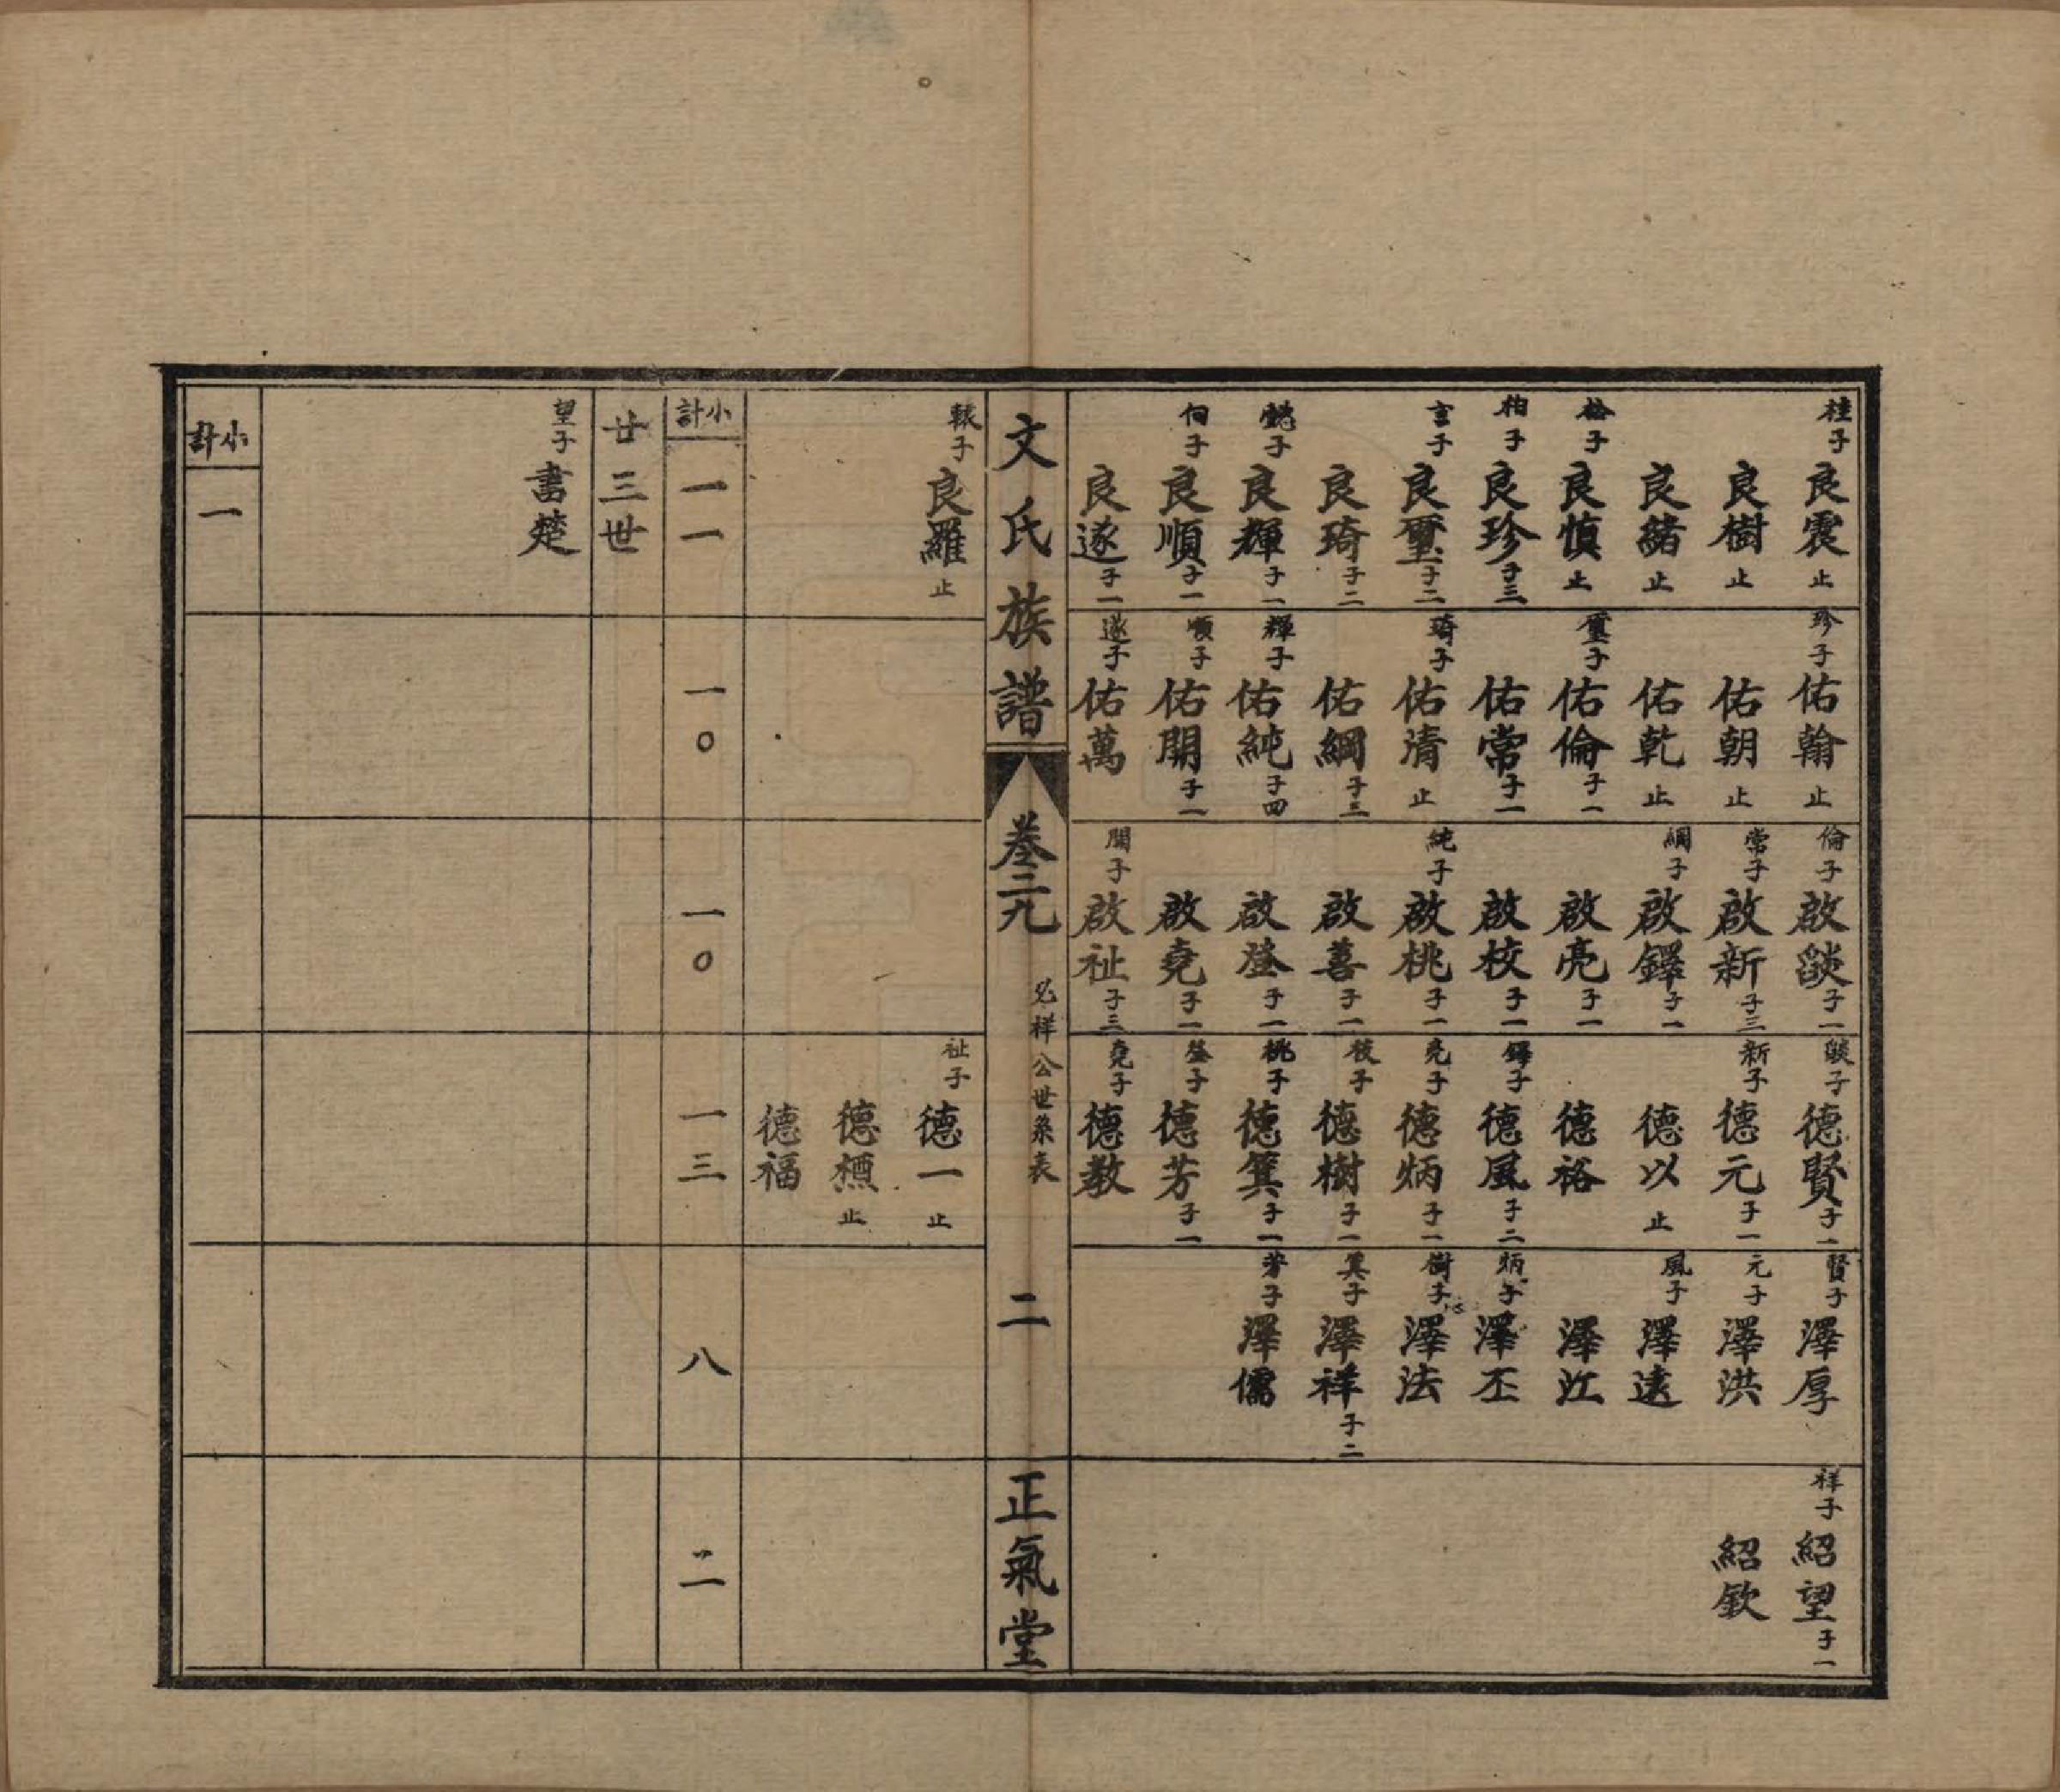 桂子 良震 止
良樹 止
良緒 止
𣐀子 良慎 止
柏子 良珍 子三
言子 良璽 子二
良琦 子二
懿子 良輝 子一
伯子 良順 子一
良遂 子一
珍子 佑翰 止
佑朝 止
佑乾 止
璽子 佑倫 子一
佑常 子一
琦子 佑清 止
佑綱 子三
輝子 佑純 子四
順子 佑開 子一
遂子 佑萬
倫子 啟燄 子一
常子 啟新 子三
綱子 啟鐸 子一
啟亮 子一
啟校 子一
純子 啟桃 子一
啟善 子一
啟登 子一
啟堯 子一
開子 啟祉 子三
燄子 德賢 子一
新子 德元 子一
德以 止
德裕
鐸子 德風 子二
亮子 德炳 子一
校子 德樹 子一
桃子 德箕 子一
登子 德芳 子一
堯子 德教
賢子 澤厚
元子 澤洪
風子 澤遠
澤江
炳子 澤丕
樹子 澤法
箕子 澤祥 子二
芳子 澤儒
祥子 紹望 子一
紹欽
文氏族譜
卷二九
必祥公世系表
二
正氣堂
轅子 良羅 止
祉子 德一 止
德標 止
德福
小計 一一
一〇
一〇
一三
八
二
廿三世
望子 書楚
小計 一